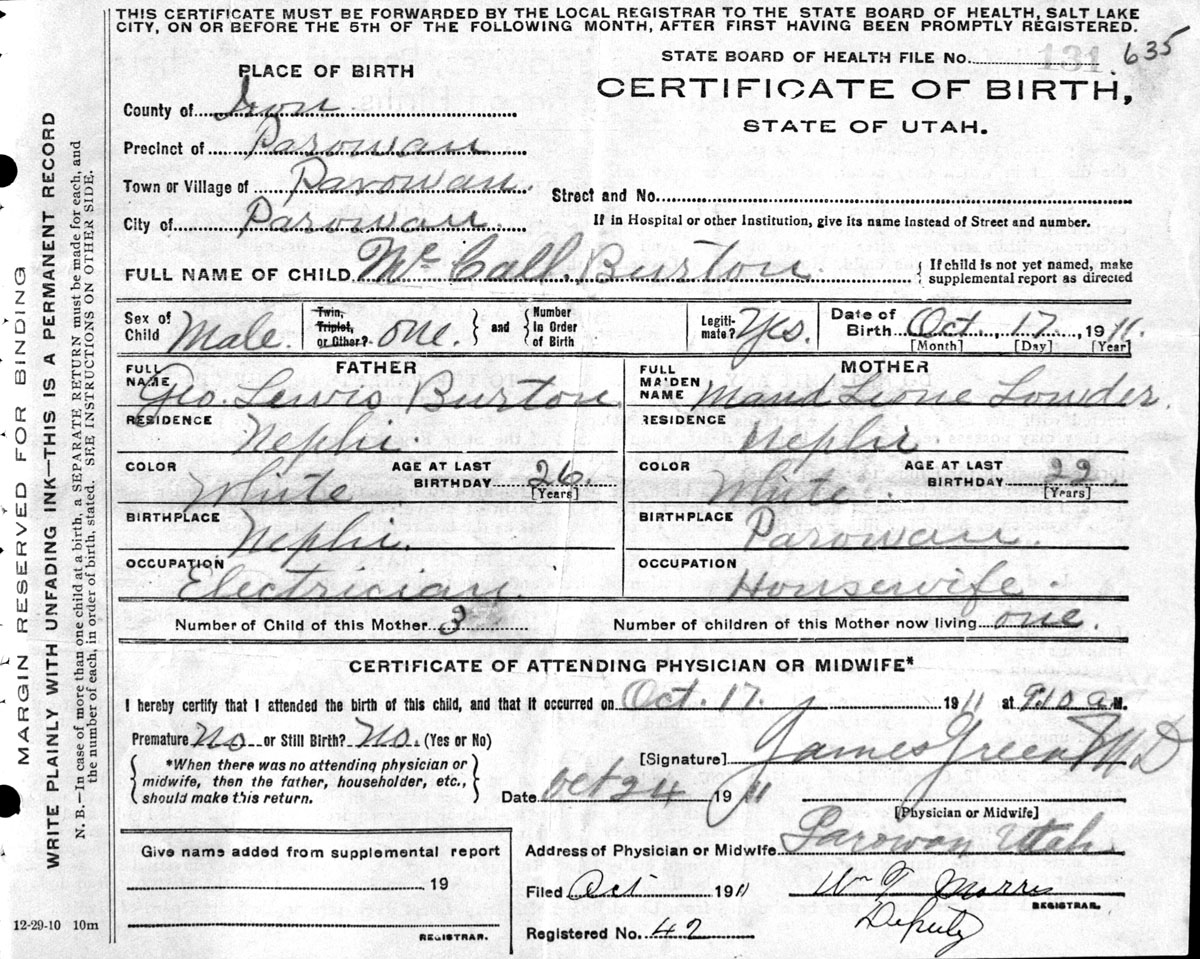 THIS CERTIFICATE MUST BE FORWARDED BY THE LOCAL REGISTRAR TO THE STATE BOARD OF HEALTH, SALT LAKE
CITY, ON OR BEFORE THE 5TH OF THE FOLLOWING MONTH, AFTER FIRST HAVING BEEN PROMPTLY REGISTERED.
STATE BOARD OF HEALTH FILE No. 131 635
PLACE OF BIRTH
CERTIFICATE OF BIRTH,
STATE OF UTAH.
County of Iron
Precinct of Parowan
Town or Village of Parowan.
Street and No.
City of Parowan
If in Hospital or other Institution, give its name instead of Street and number.
FULL NAME OF CHILD McCall Burton.
{ If child is not yet named, make
supplemental report as directed
Sex of Child Male.
Twin, Triplet, or Other? one. } and { Number In Order of Birth
Legiti-mate? Yes.
Date of Birth Oct. 17, 1911.
[Month] [Day] [Year]
FATHER
MOTHER
FULL NAME Geo. Lewis Burton
FULL MAIDEN NAME Maud Leone Lowder.
RESIDENCE Nephi
RESIDENCE Nephi
COLOR White
AGE AT LAST BIRTHDAY 26. [Years]
COLOR White.
AGE AT LAST BIRTHDAY 22 [Years]
BIRTHPLACE Nephi.
BIRTHPLACE Parowan.
OCCUPATION Electrician.
OCCUPATION Housewife.
Number of Child of this Mother 3
Number of children of this Mother now living one.
CERTIFICATE OF ATTENDING PHYSICIAN OR MIDWIFE*
I hereby certify that I attended the birth of this child, and that it occurred on Oct. 17. 1911 at 9.10 a M.
Premature No or Still Birth? No. (Yes or No)
{ *When there was no attending physician or
midwife, then the father, householder, etc.,
should make this return. }
[Signature] James Green M D
Date Oct 24 1911
[Physician or Midwife]
Give name added from supplemental report
19
REGISTRAR.
Address of Physician or Midwife Parowan Utah.
Filed Oct 1911
Wm T Morris
REGISTRAR.
Deputy
Registered No. 42
12-29-10 10m
MARGIN RESERVED FOR BINDING
WRITE PLAINLY WITH UNFADING INK—THIS IS A PERMANENT RECORD
N. B.—In case of more than one child at a birth, a SEPARATE RETURN must be made for each, and
the number of each, in order of birth, stated. SEE INSTRUCTIONS ON OTHER SIDE.